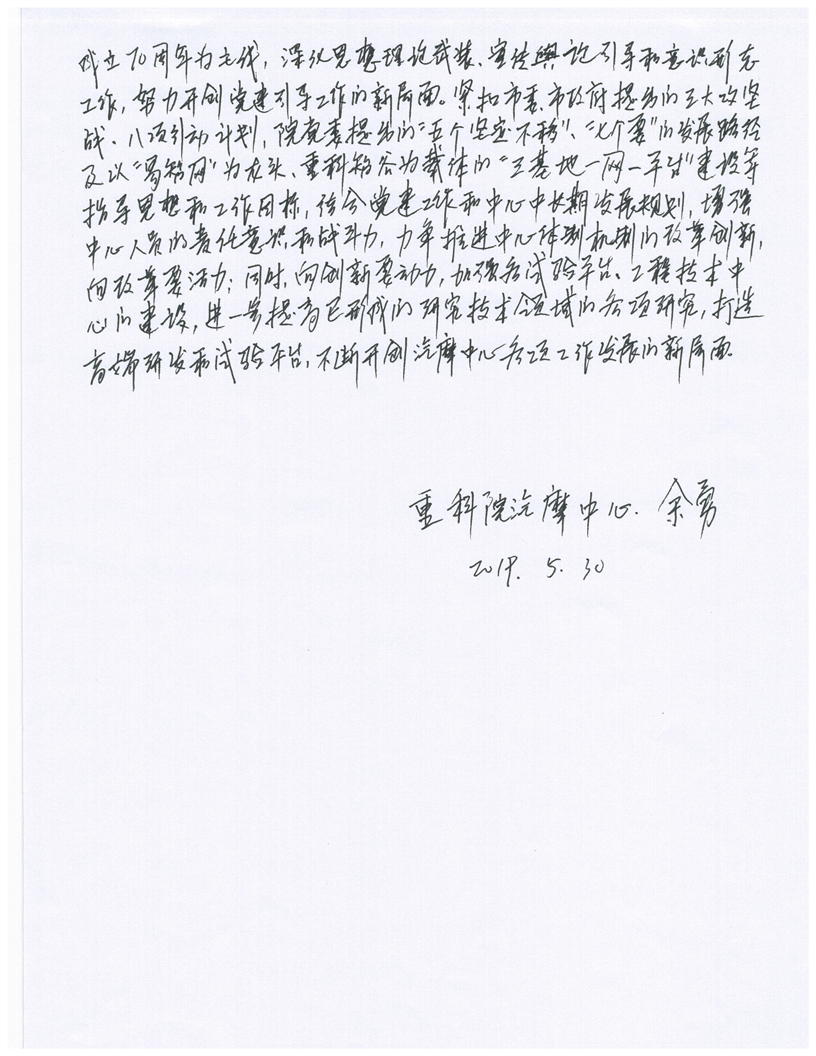 成立70周年为主线，深化思想理论武装、宣传舆论引导和意识形态
工作，努力开创党建引导工作的新局面。紧扣市委、市政府提出的三大攻坚
战、八项行动计划，院党委提出的“五个坚定不移”、“七个要”的发展路径
及以“易智网”为龙头、重科智谷为载体的“三基地一网一平台”建设等
指导思想和工作目标，结合党建工作和中心中长期发展规划，增强
中心人员的责任意识和战斗力，力争推进中心体制机制的改革创新，
向改革要活力；同时，向创新要动力，加强各试验平台、工程技术中
心的建设，进一步提高已形成的研究技术领域的各项研究，打造
高端研发和试验平台，不断开创汽摩中心各项工作发展的新局面。
重科院汽摩中心 余勇
2019. 5. 30